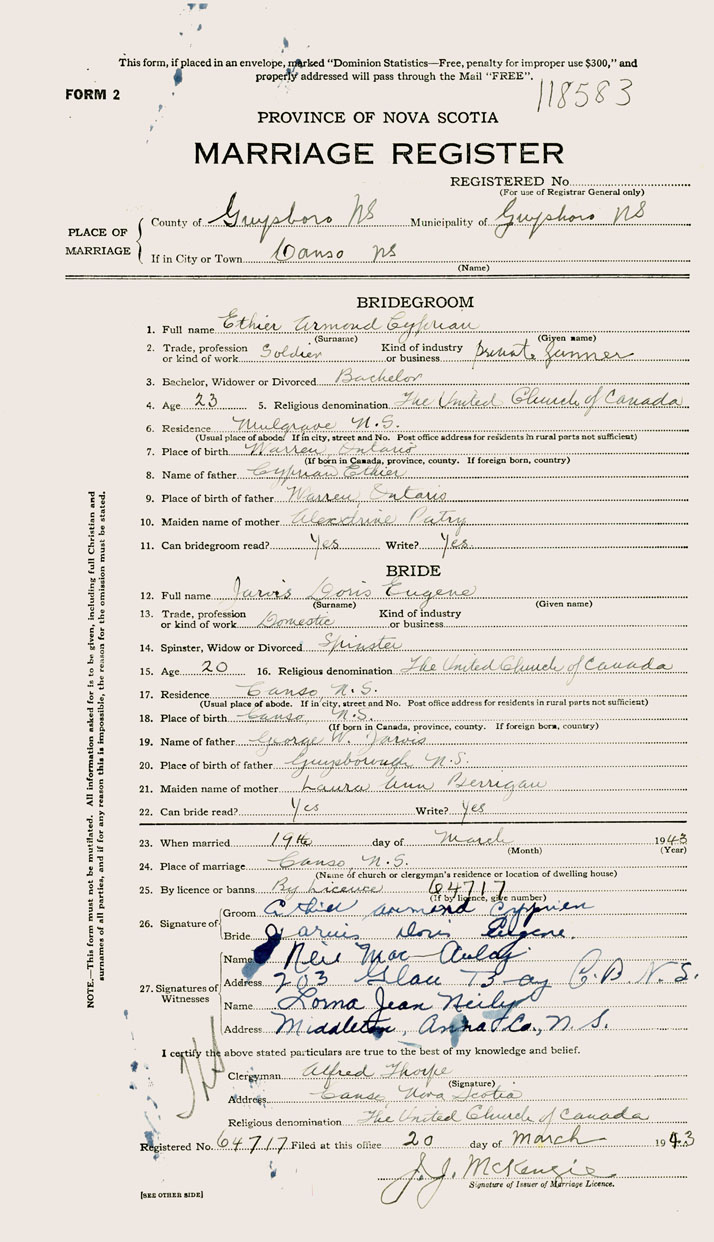 This form, if placed in an envelope, marked "Dominion Statistics—Free, penalty for improper use $300," and
properly addressed will pass through the Mail "FREE".
FORM 2
118583
PROVINCE OF NOVA SCOTIA
MARRIAGE REGISTER
REGISTERED No.
(For use of Registrar General only)
PLACE OF MARRIAGE
County of Guysboro NS Municipality of Guysboro NS
If in City or Town Canso NS
(Name)
BRIDEGROOM
1. Full name Ethier Armond Cyprian
(Surname) (Given name)
2. Trade, profession or kind of work Soldier Kind of industry or business Private Gunner
3. Bachelor, Widower or Divorced Bachelor
4. Age 23 5. Religious denomination The United Church of Canada
6. Residence Mulgrave N.S.
(Usual place of abode. If in city, street and No. Post office address for residents in rural parts not sufficient)
7. Place of birth Warren Ontario
(If born in Canada, province, county. If foreign born, country)
8. Name of father Cyprian Ethier
9. Place of birth of father Warren Ontario
10. Maiden name of mother Alexdrine Patry
11. Can bridegroom read? Yes Write? Yes.
BRIDE
12. Full name Jarvis Doris Eugene
(Surname) (Given name)
13. Trade, profession or kind of work Domestic Kind of industry or business
14. Spinster, Widow or Divorced Spinster
15. Age 20 16. Religious denomination The United Church of Canada
17. Residence Canso, N.S.
(Usual place of abode. If in city, street and No. Post office address for residents in rural parts not sufficient)
18. Place of birth Canso N.S.
(If born in Canada, province, county. If foreign born, country)
19. Name of father George W. Jarvis
20. Place of birth of father Guysborough N.S.
21. Maiden name of mother Laura Ann Berrigan
22. Can bride read? Yes Write? Yes
23. When married 19th day of March 1943
(Month) (Year)
24. Place of marriage Canso, N.S.
(Name of church or clergyman's residence or location of dwelling house)
25. By licence or banns By Licence 64717
(If by licence, give number)
26. Signature of
Groom Ethier Armond Cyprien
Bride Jarvis Doris Eugene.
27. Signatures of Witnesses
Name Neil Mac-Aulay
Address 203 Glace Bay C.B. N.S.
Name Lorna Jean Neily
Address Middleton, Anna. Co., N.S.
I certify the above stated particulars are true to the best of my knowledge and belief.
Clergyman Alfred Thorpe
(Signature)
Address Canso, Nova Scotia
Religious denomination The United Church of Canada
Registered No. 64717 Filed at this office 20 day of March 1943
J.J. McKenzie
Signature of Issuer of Marriage Licence.
[SEE OTHER SIDE]
NOTE.—This form must not be mutilated. All information asked for is to be given, including full Christian and
surnames of all parties, and if for any reason this is impossible, the reason for the omission must be stated.